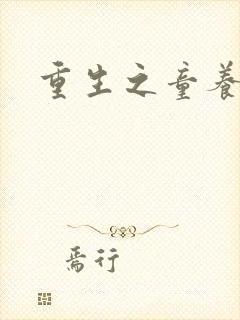 重生之童養
焉行